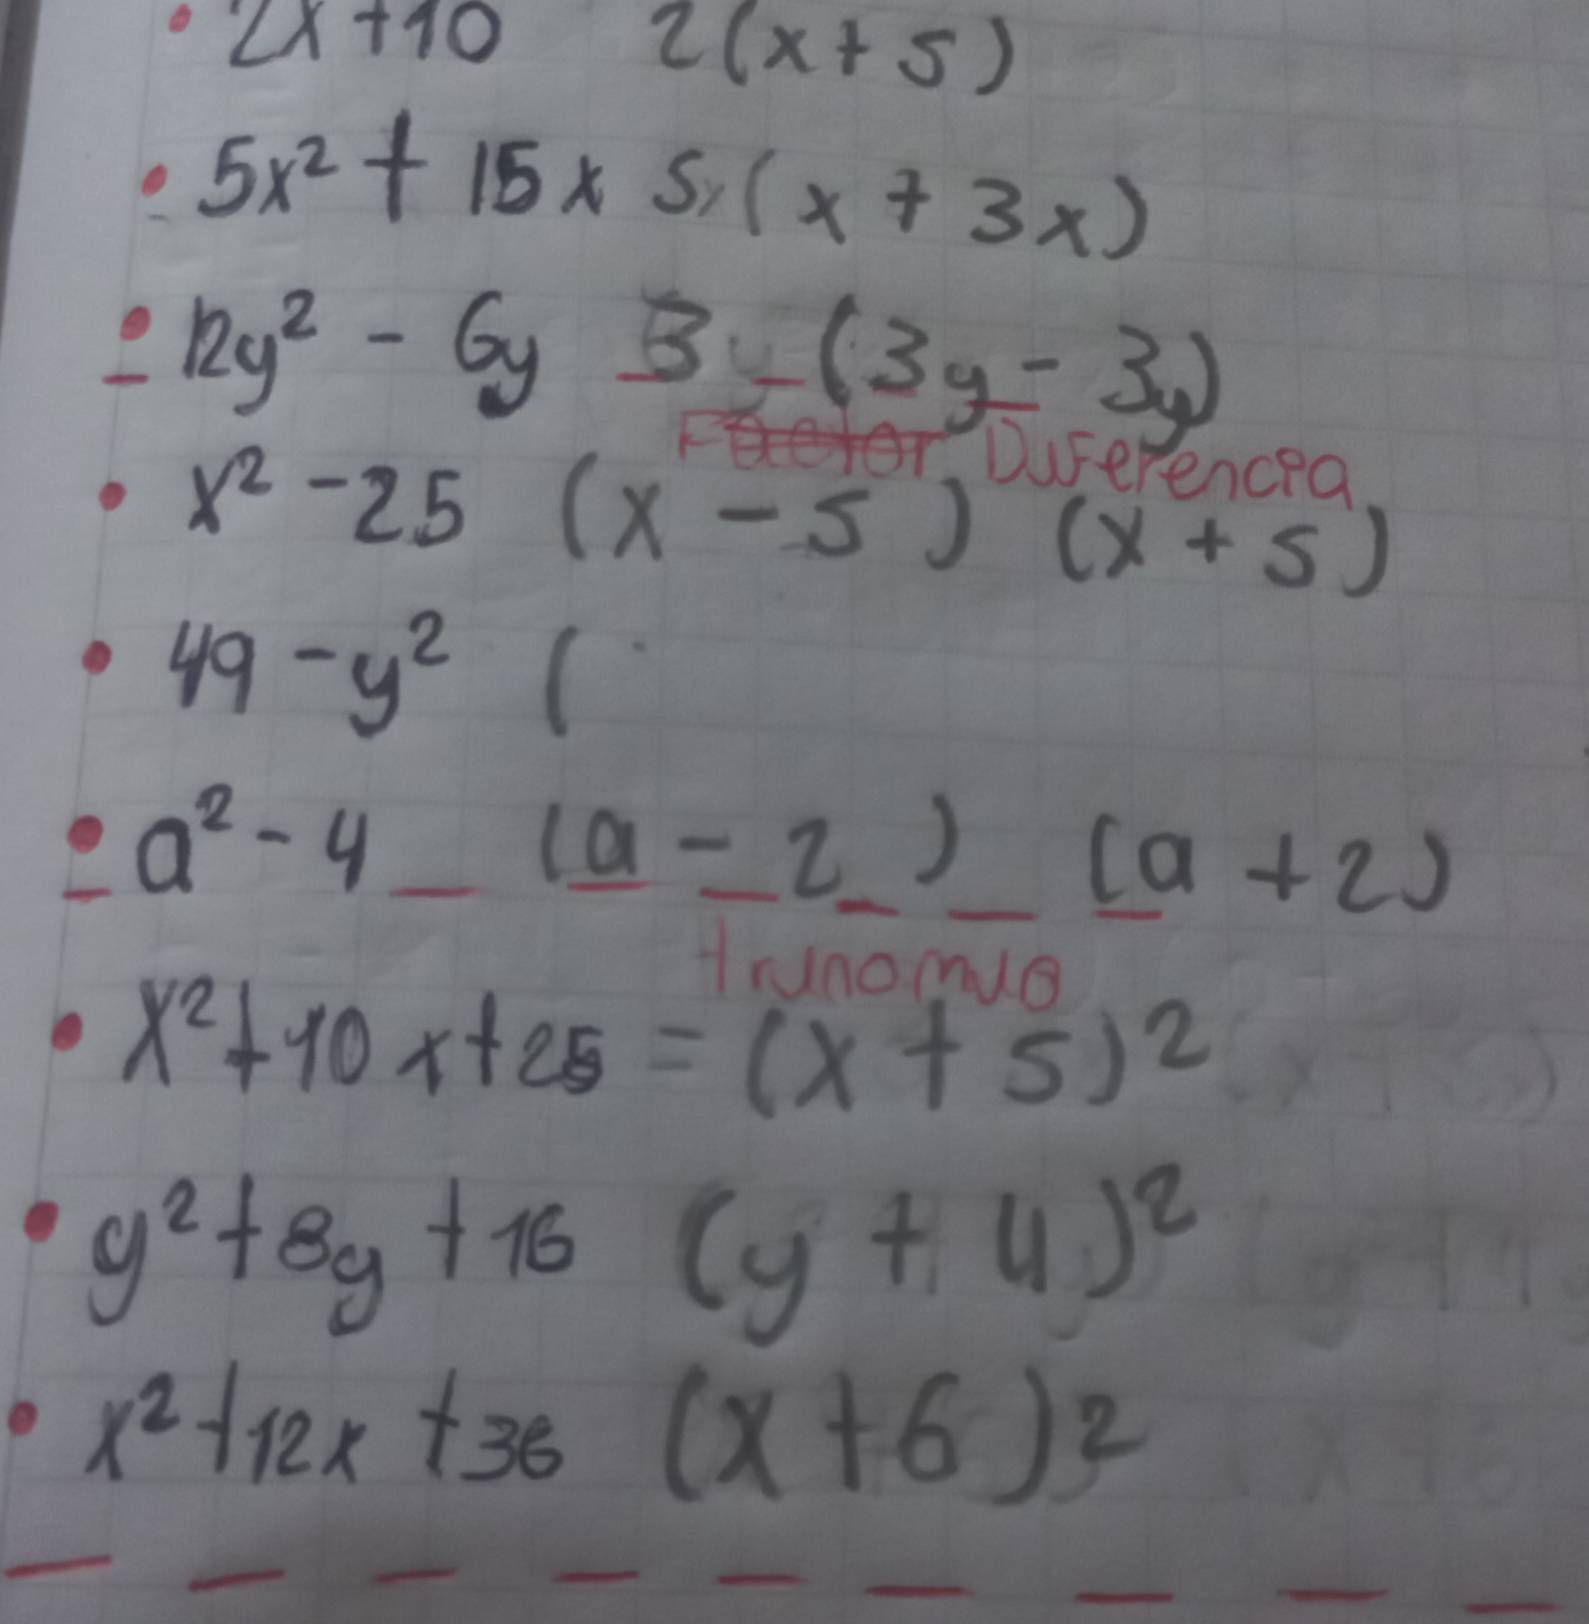 2x + 10 2(x + 5)
5x² + 15x 5x(x + 3x)
12y² - 6y 3y(3y - 3y)
Diferencia
x² - 25 (x - 5) (x + 5)
49 - y² (
a² - 4 (a - 2) (a + 2)
trinomio
x² + 10x + 25 = (x + 5)²
y² + 8y + 16 (y + 4)²
x² + 12x + 36 (x + 6)²